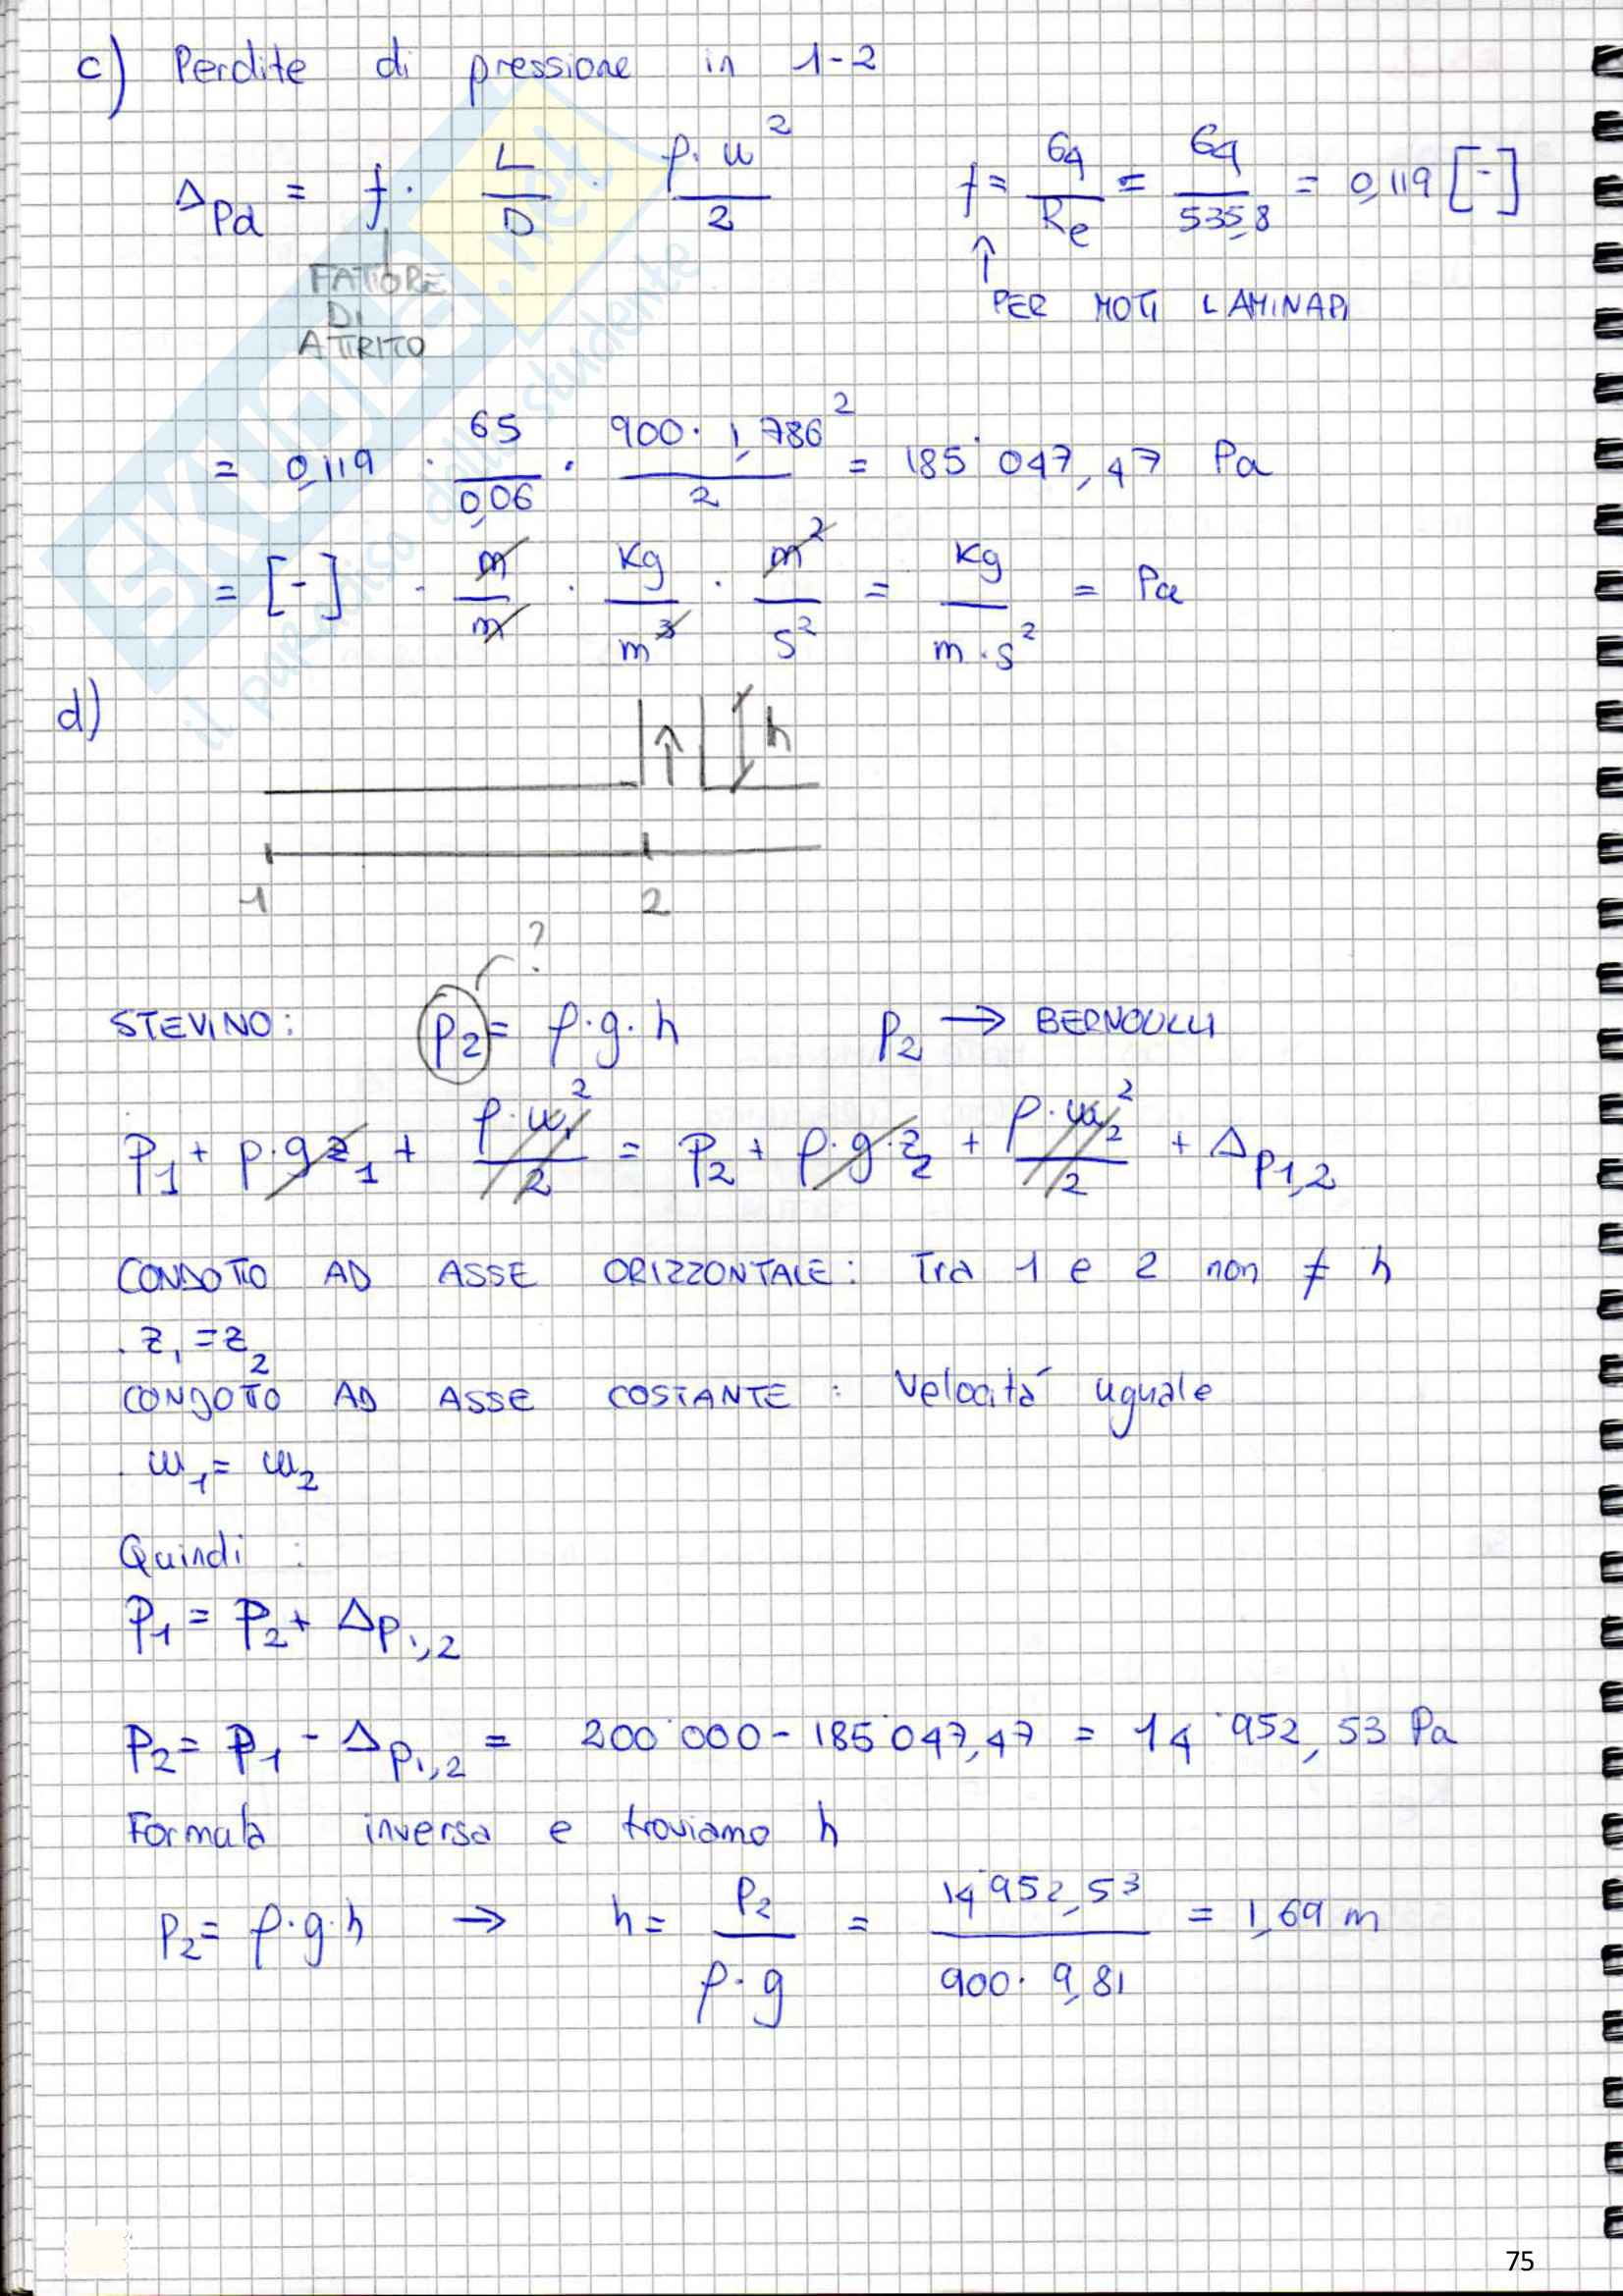 c) Perdite di pressione in 1-2
Δpd = f · L/D · ρ·w²/2    f = 64/Re = 64/535,8 = 0,119 [-]
FATTORE DI ATTRITO    ↑ PER MOTI LAMINARI
= 0,119 · 65/0,06 · 900·1,786²/2 = 185˙047,47 Pa
= [-] · m/m · Kg/m³ · m²/s² = Kg/m·s² = Pa
d)
h
1 2
?
STEVINO: p2 = ρ·g·h    p2 → BERNOULLI
p1 + ρ·g z1 + ρ·w1²/2 = p2 + ρ·g·z2 + ρ·w2²/2 + Δp1,2
CONDOTTO AD ASSE ORIZZONTALE: Tra 1 e 2 non ≠ h
. z1 = z2
CONDOTTO AD ASSE COSTANTE : Velocità uguale
. w1 = w2
Quindi :
p1 = p2 + Δp1,2
p2 = p1 - Δp1,2 = 200˙000 - 185˙047,47 = 14˙952,53 Pa
Formula inversa e troviamo h
p2 = ρ·g·h → h = p2/ρ·g = 14˙952,53/900·9,81 = 1,69 m
75
SKUOLA.net
il paradiso dello studente